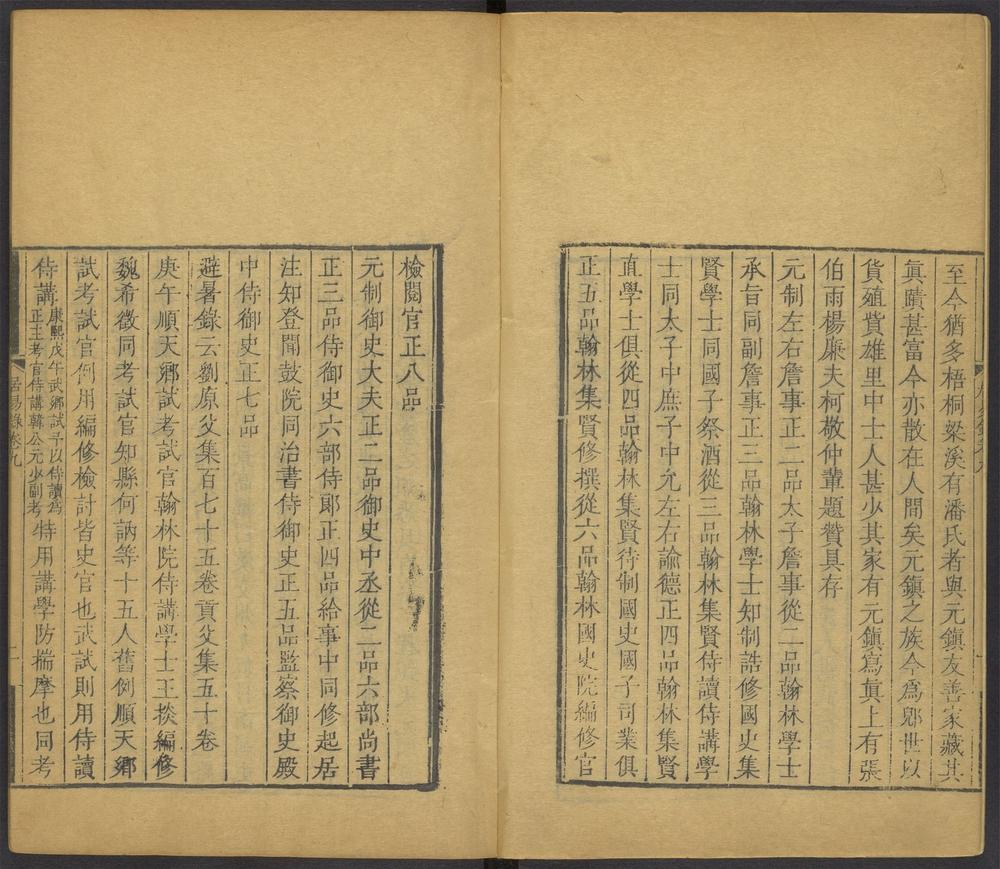 至今猶多梧桐梁溪有潘氏者與元鎮友善家藏其
真蹟甚富今亦散在人間矣元鎮之族今爲郎世以
貨殖貲雄里中士人甚少其家有元鎮寫真上有張
伯雨楊廉夫柯敬仲輩題贊具存
元制左右詹事正二品太子詹事從二品翰林學士
承旨同副詹事正三品翰林學士知制誥修國史集
賢學士同國子祭酒從三品翰林集賢侍讀侍講學
士同太子中庶子中允左右諭德正四品翰林集賢
直學士俱從四品翰林集賢待制國史國子司業俱
正五品翰林集賢修撰從六品翰林國史院編修官
檢閱官正八品
元制御史大夫正二品御史中丞從二品六部尚書
正三品侍御史六部侍郎正四品給事中同修起居
注知登聞鼓院同治書侍御史正五品監察御史殿
中侍御史正七品
避暑錄云劉原父集百七十五卷貢父集五十卷
庚午順天鄉試考試官翰林院侍講學士王掞編修
魏希徵同考試官知縣何訥等十五人舊例順天鄉
試考試官例用編修檢討皆史官也武試則用侍讀
侍講康熙戊午武鄉試予以侍讀爲正主考官侍講韓公元少副考特用講學防揣摩也同考
居易錄卷九